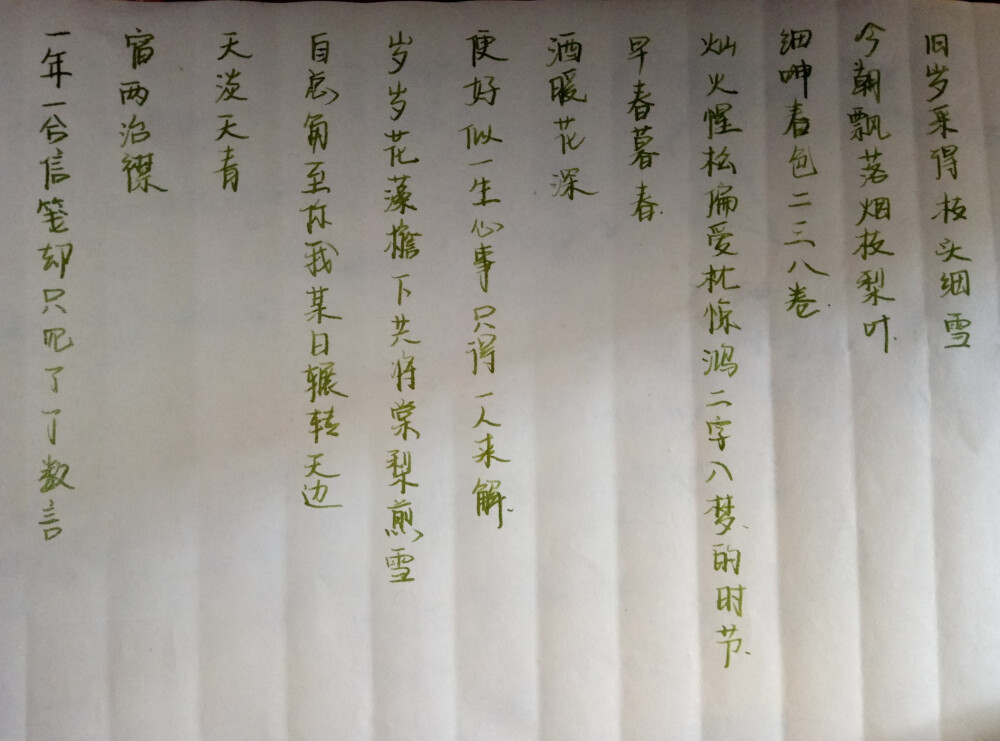 旧岁采得枝头细雪
今朝飘落烟枝梨叶
细呻春包二三八卷
灿火惺松偏爱枕惊鸿二字八梦的时节
早春暮春
酒暖花深
便好似一生心事只得一人来解
岁岁花藻檐下共将棠梨煎雪
自总角至你我某日辗转天边
天淡天青
宿两沾襟
一年一兮信笺却只见了了数言